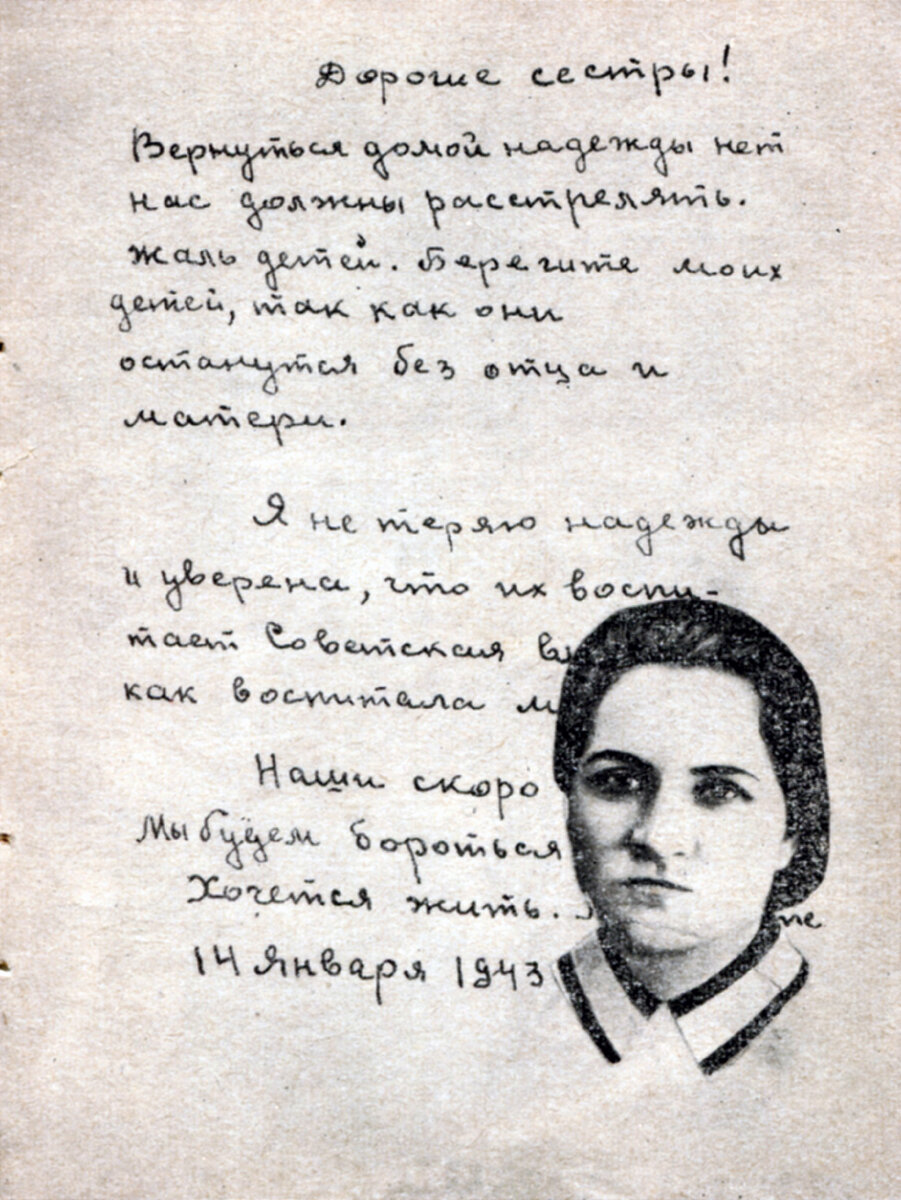 Дорогие сестры!
Вернуться домой надежды нет
нас должны расстрелять.
Жаль детей. Берегите моих
детей, так как они
останутся без отца и
матери.
Я не теряю надежды
и уверена, что их воспи-
тает Советская
как воспитала
Наши скоро
Мы будем бороться
Хочется жить.
14 Января 1943